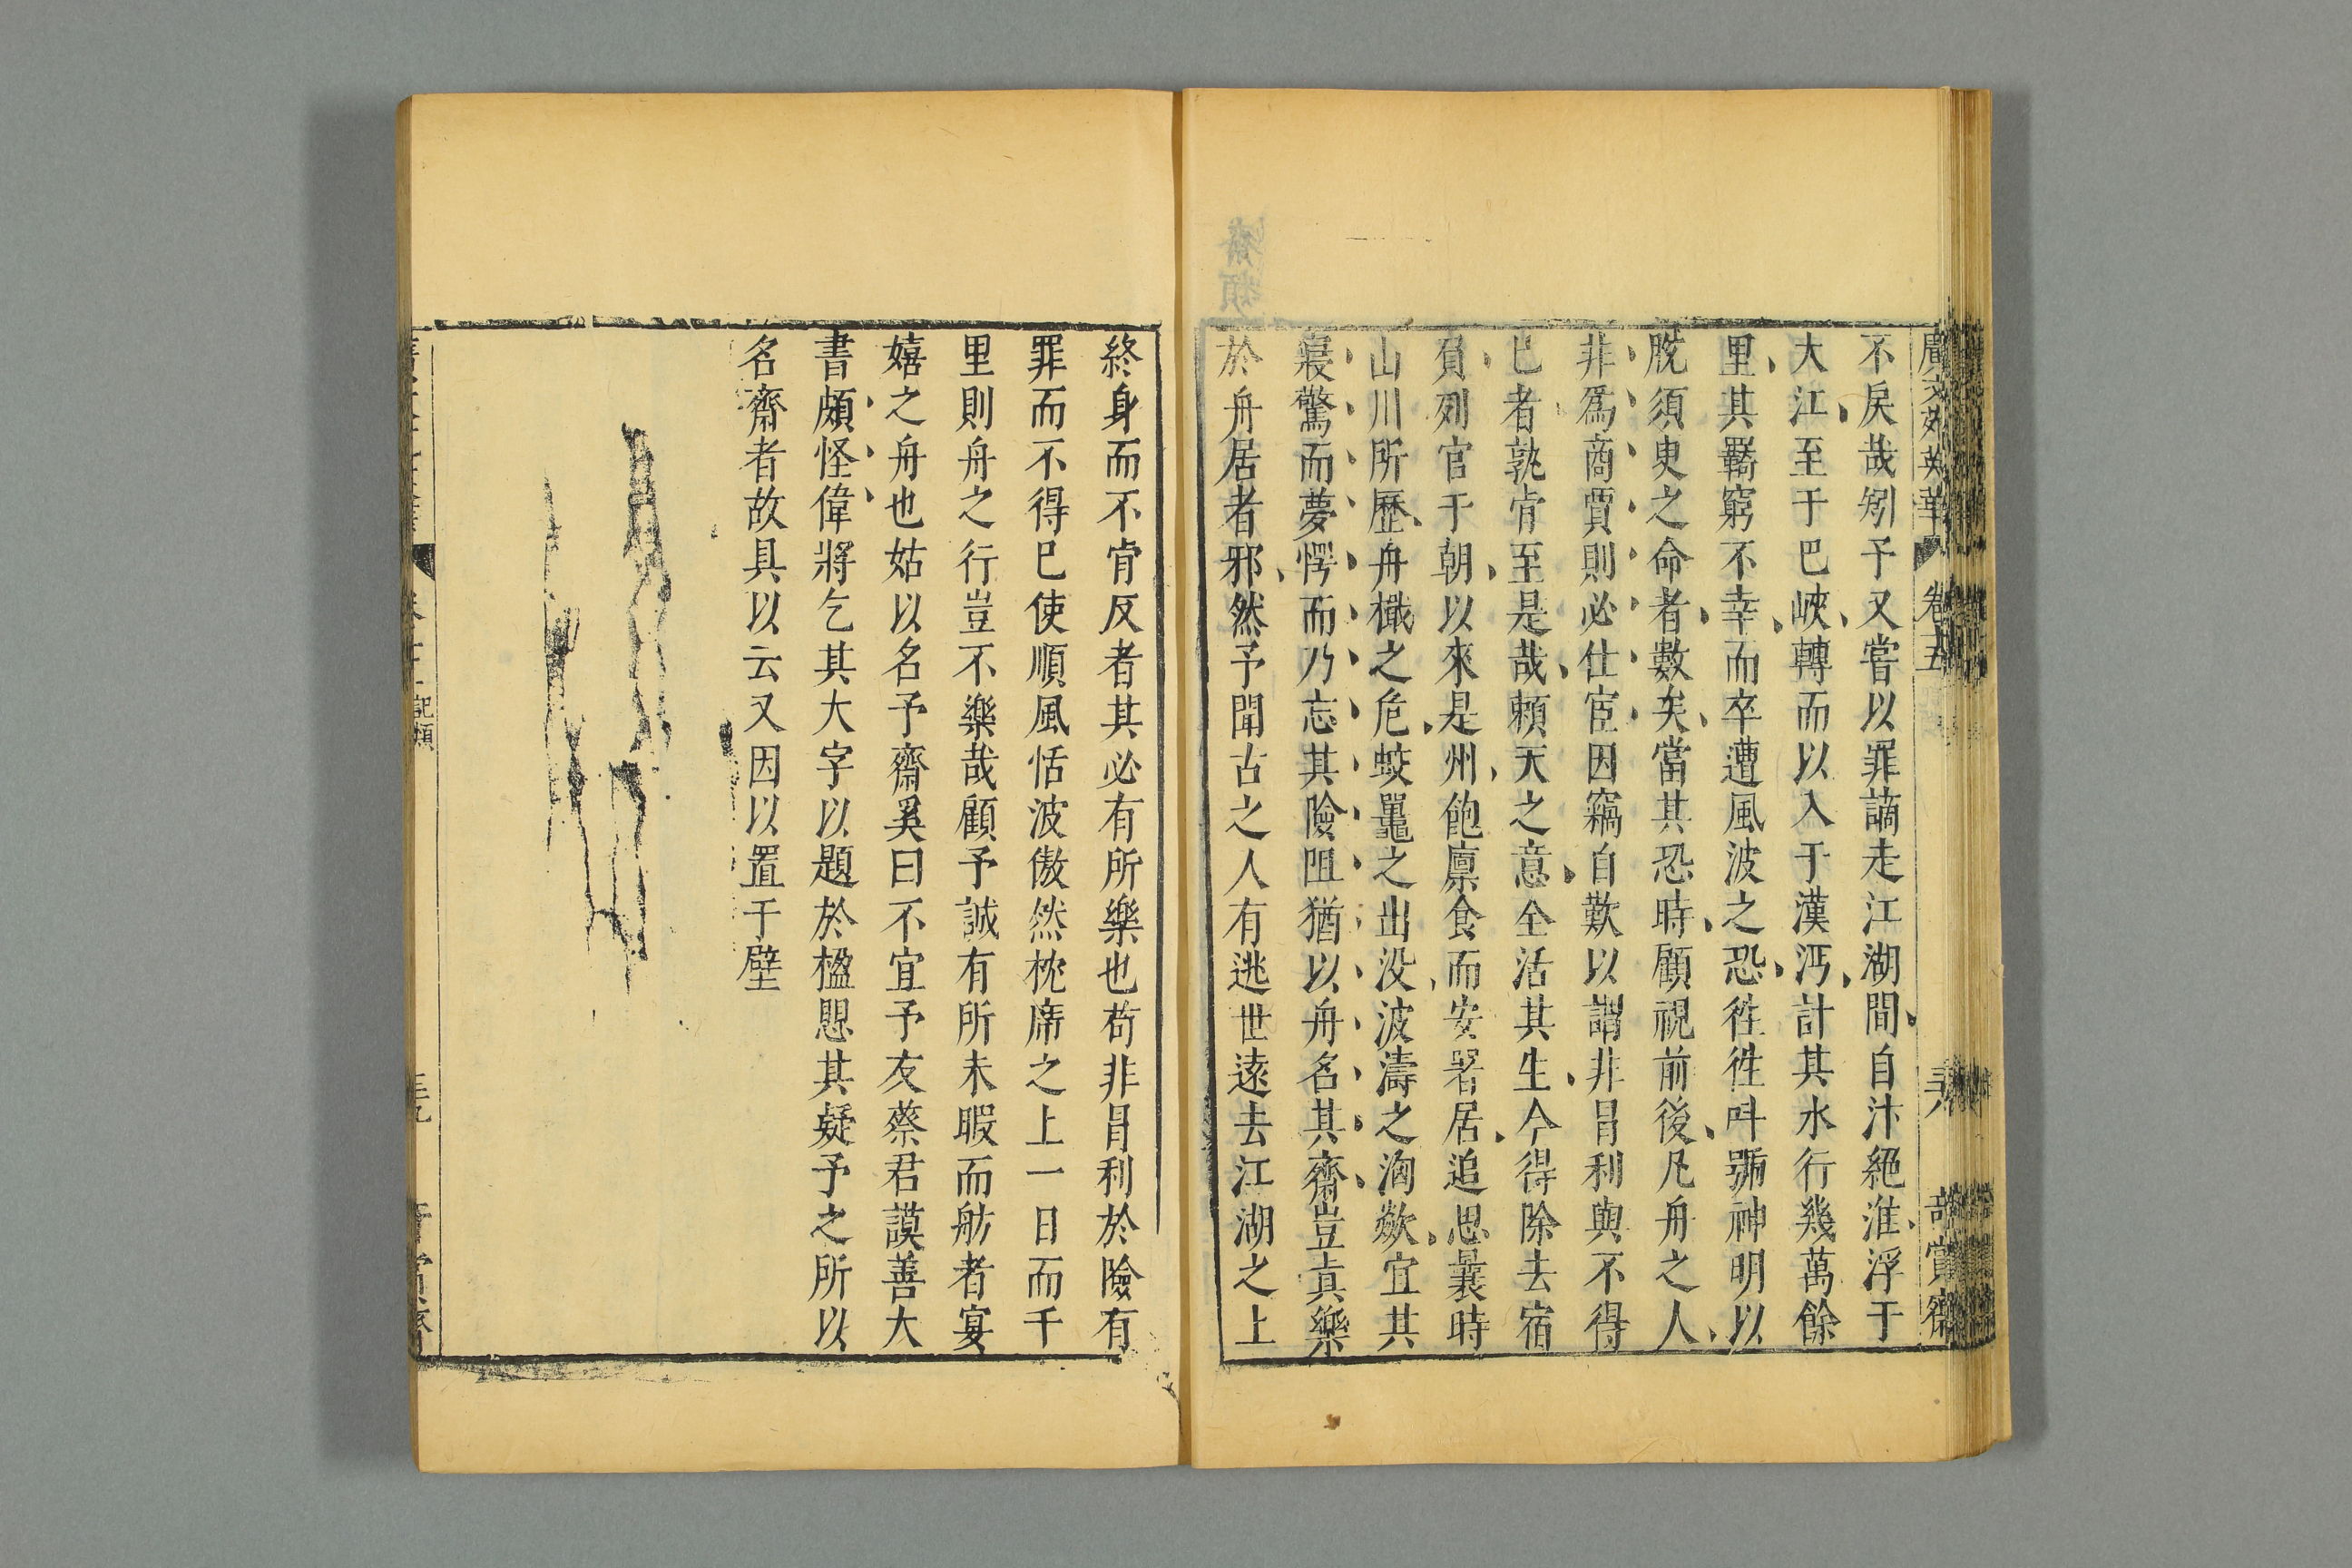 廣文苑英華 卷五 三六 奇賞齋
不戾哉矧予又嘗以罪謫走江湖間自汴絕淮浮于
大江至于巴峽轉而以入于漢沔計其水行幾萬餘
里其羇窮不幸而卒遭風波之恐徃徃呌號神明以
脫須臾之命者數矣當其恐時顧視前後凡舟之人
非爲商賈則必仕宦因竊自歎以謂非冐利與不得
已者孰肯至是哉賴天之意全活其生今得除去宿
負列官于朝以來是州飽廪食而安署居追思曩時
山川所歷舟檝之危蛟鼉之出没波濤之洶歘宜其
寢驚而夢愕而乃忘其險阻猶以舟名其齋豈眞樂
於舟居者邪然予聞古之人有逃世遠去江湖之上
終身而不肯反者其必有所樂也苟非冐利於險有
罪而不得已使順風恬波傲然枕席之上一日而千
里則舟之行豈不樂哉顧予誠有所未暇而舫者宴
嬉之舟也姑以名予齋奚曰不宜予友蔡君謨善大
書頗怪偉將乞其大字以題於楹懼其疑予之所以
名齋者故具以云又因以置于壁
記類